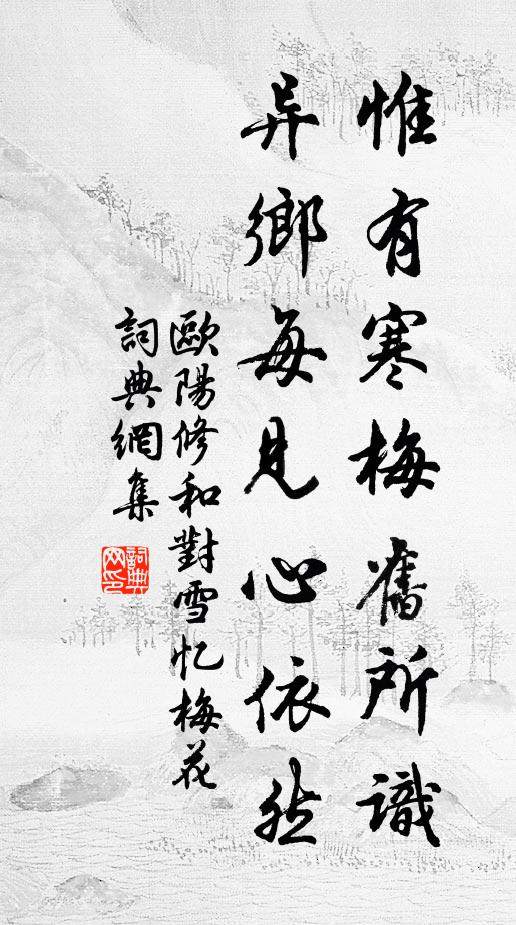 惟有寒梅舊所識
异鄉每見心依然
歐陽修和對雪忆梅花
詞典網集
詞典
网印